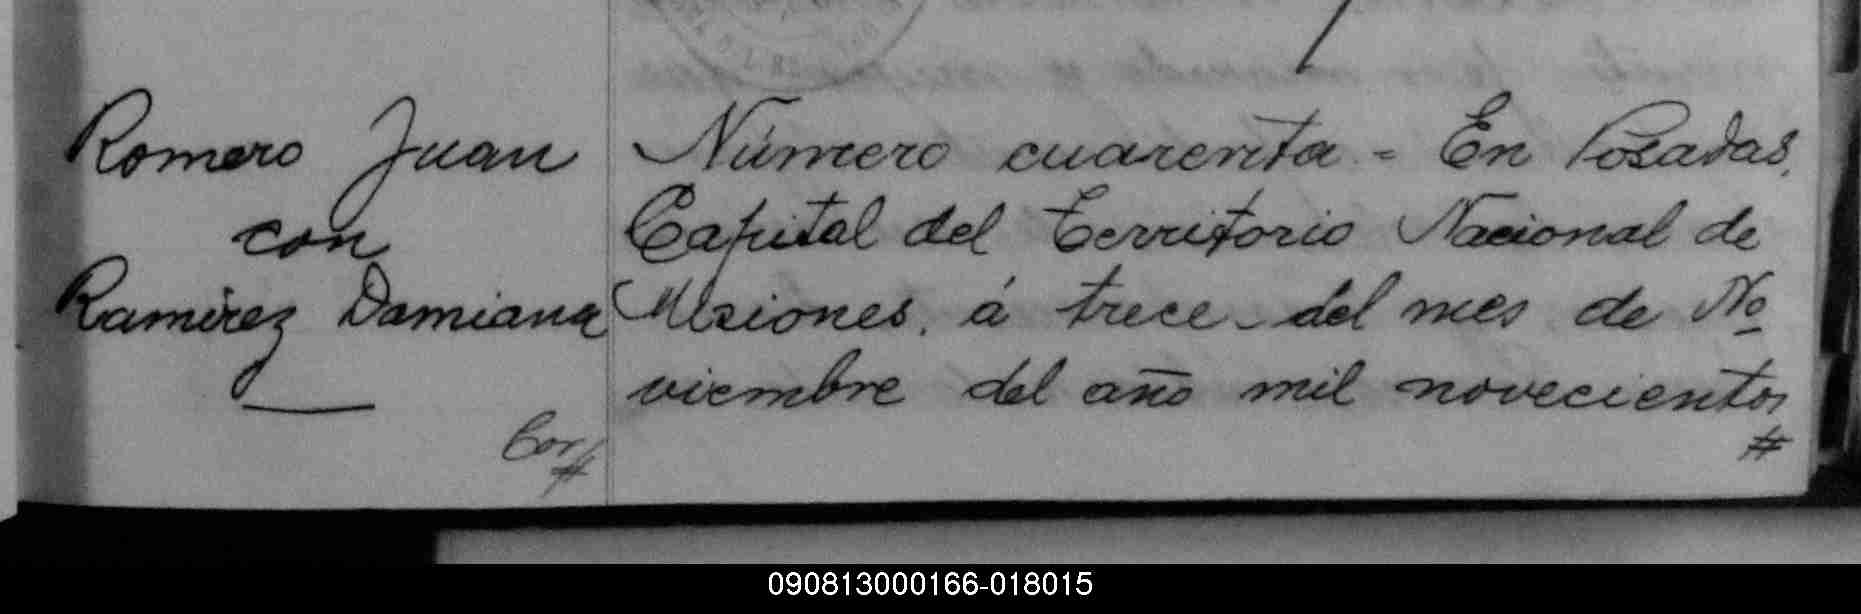 Romero Juan
con
Ramirez Damiana
Número cuarenta = En Posadas,
Capital del Territorio Nacional de
Misiones, á trece del mes de No
viembre del año mil novecientos
#
090813000166-018015